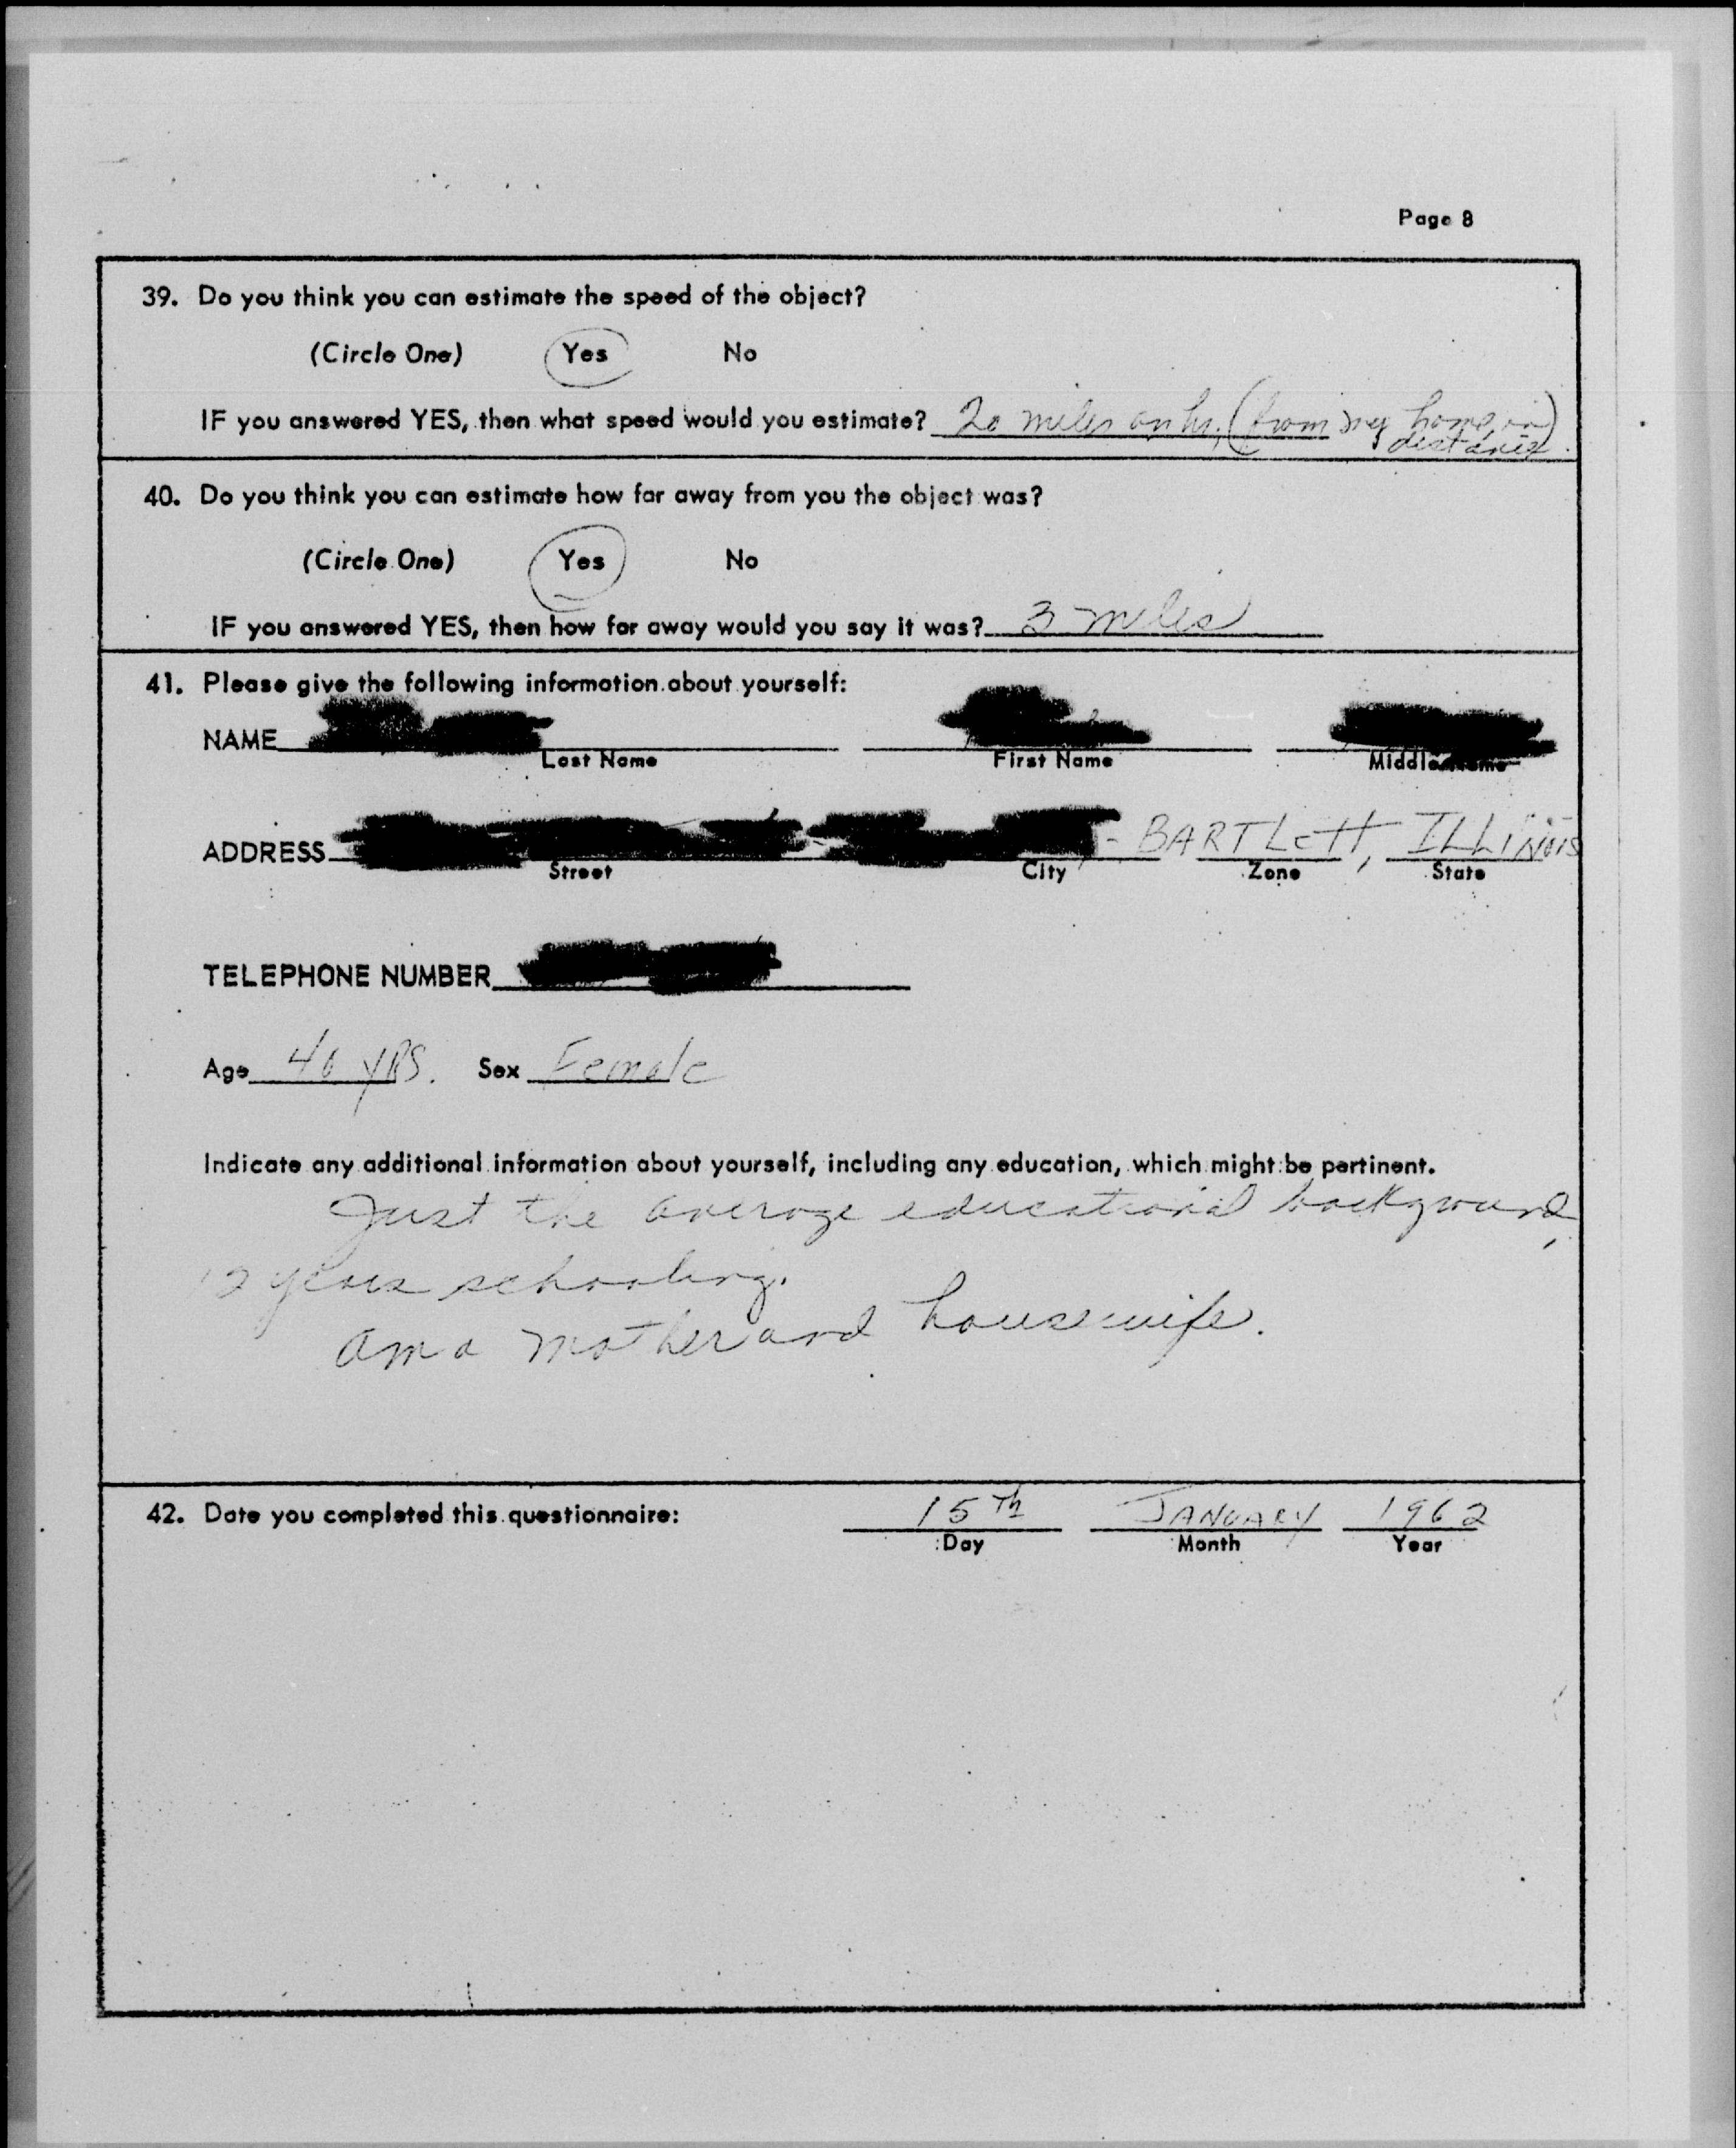 Page 8
39. Do you think you can estimate the speed of the object?
(Circle One) Yes No
IF you answered YES, then what speed would you estimate? 20 miles an hr. (from my home, in)
distance.
40. Do you think you can estimate how far away from you the object was?
(Circle One) Yes No
IF you answered YES, then how far away would you say it was? 3 miles
41. Please give the following information about yourself:
NAME
Last Name First Name Middle Name
ADDRESS - BARTLETT, ILLINOIS
Street City Zone State
TELEPHONE NUMBER
Age 40 YRS. Sex Female
Indicate any additional information about yourself, including any education, which might be pertinent.
Just the average educational background,
12 years schooling.
Am a mother and housewife.
42. Date you completed this questionnaire: 15th JANUARY 1962
Day Month Year